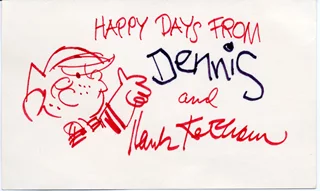 HAPPY DAYS FROM
DENNIS
and
Hank Ketcham